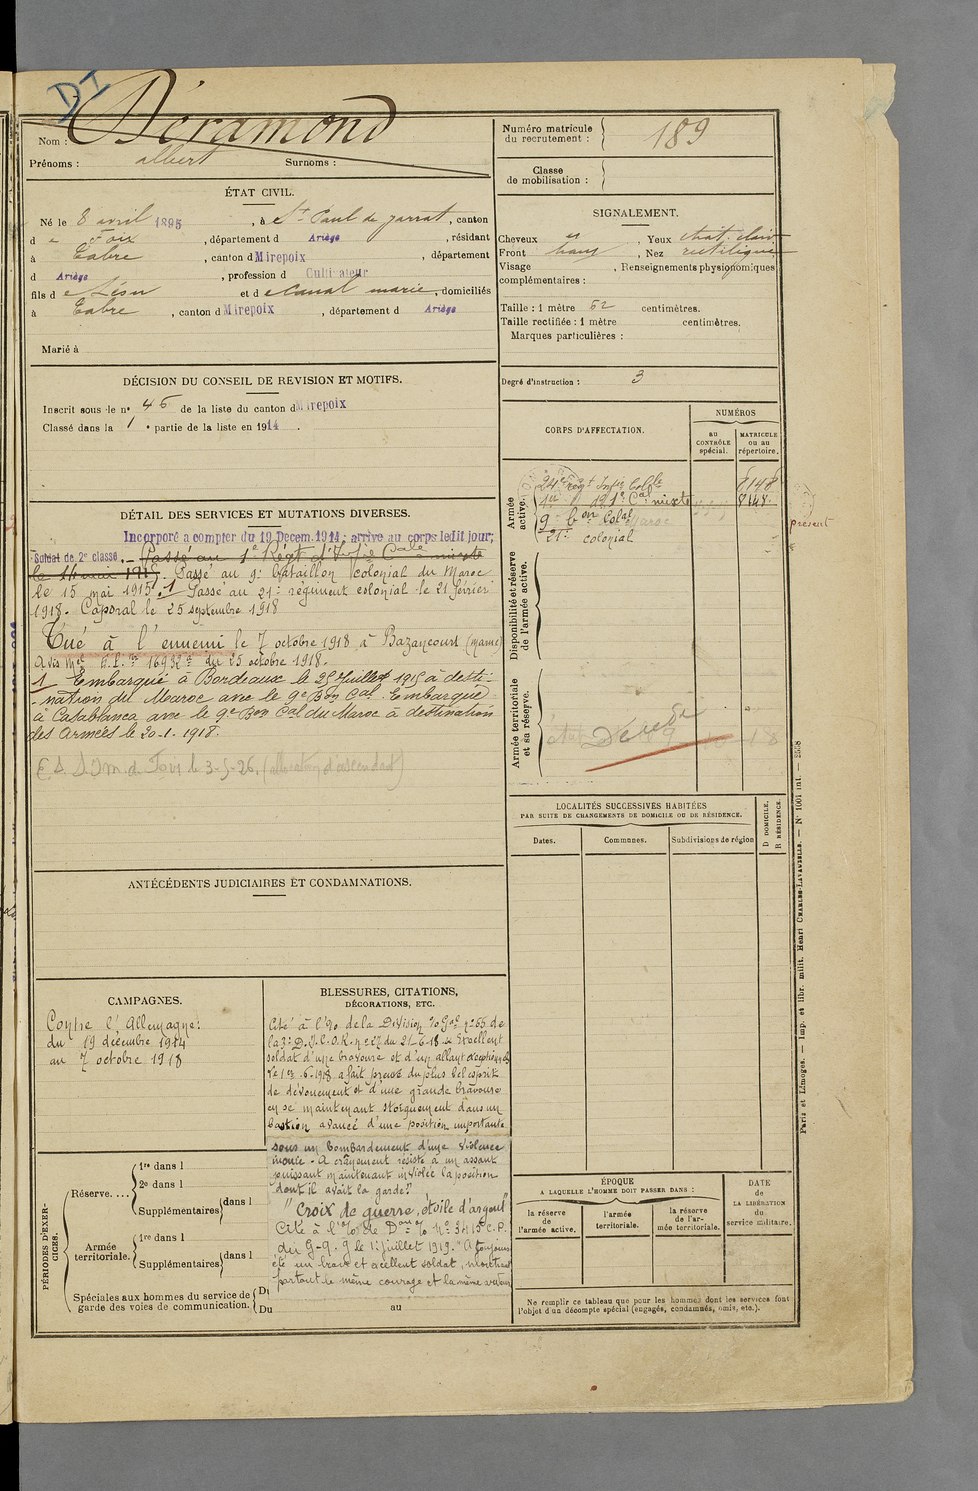 DI
Nom : Déramond
Prénoms : albert Surnoms :
Numéro matricule du recrutement : 189
Classe de mobilisation :
ÉTAT CIVIL.
Né le 8 avril 1895, à St Paul de jarrat, canton
d e Foix, département d Ariège, résidant
à Cabre, canton d Mirepoix, département
d Ariège, profession d Cultivateur
fils d e Léon et d e Canal marie, domiciliés
à Cabre, canton d Mirepoix, département d Ariège
Marié à
SIGNALEMENT.
Cheveux Yeux chat. clair
Front Nez rectiligne
Visage , Renseignements physionomiques
complémentaires :
Taille : 1 mètre 62 centimètres.
Taille rectifiée : 1 mètre centimètres.
Marques particulières :
Degré d'instruction : 3
DÉCISION DU CONSEIL DE REVISION ET MOTIFS.
Inscrit sous le n° 45 de la liste du canton d Mirepoix
Classé dans la 1 e partie de la liste en 1914.
DÉTAIL DES SERVICES ET MUTATIONS DIVERSES.
Incorporé a compter du 19 Decem. 1914; arrivé au corps ledit jour;
Soldat de 2e classe. - Passé au 1e Régt d'Infie Cale mixte
le 14 mai 1915. Passé au 9e bataillon colonial du Maroc
le 15 mai 1915. 1 Passé au 21e régiment colonial le 21 février
1918. Caporal le 25 septembre 1918
Tué à l'ennemi le 7 octobre 1918 à Bazancourt (marne)
Avis du 25 octobre 1918.
1 Embarqué à Bordeaux le 25 Juillet 1915 à desti-
-nation du Maroc avec le 9e Bon Cal. Embarqué
à Casablanca avec le 9e Bon Cal du Maroc à destination
des Armées le 20-1-1918.
de Foix le 3-5-26, (allocation d'ascendant)
CORPS D'AFFECTATION.
NUMÉROS
au contrôle spécial.
MATRICULE ou au répertoire.
Armée active.
24e Régt Infie Colle 8148
Cal mixte 8148
9 bon Colal Maroc
21e colonial
présent
Disponibilité et réserve de l'armée active.
Armée territoriale et sa réserve.
LOCALITÉS SUCCESSIVES HABITÉES
PAR SUITE DE CHANGEMENTS DE DOMICILE OU DE RÉSIDENCE.
Dates. Communes. Subdivisions de région
D DOMICILE.
R RÉSIDENCE.
ANTÉCÉDENTS JUDICIAIRES ET CONDAMNATIONS.
CAMPAGNES.
Contre l'Allemagne:
du 19 décembre 1914
au 7 octobre 1918
BLESSURES, CITATIONS,
DÉCORATIONS, ETC.
Cité à l'%o de la Division %o Gal n° 65 de
la 3e D.I.C.O.R. n° 27 du 21-6-18 Excellent
soldat d'une bravoure et d'un allant exceptionnels
Le 1er-6-1918 a fait preuve du plus bel esprit
de dévouement et d'une grande bravoure
en se maintenant stoïquement dans un
bastion avancé d'une position importante
sous un bombardement d'une violence
inouïe - A crânement résisté à un assaut
puissant maintenant inviolée la position
dont il avait la garde"
"Croix de guerre, étoile d'argent"
Cité à l'%o de Don %o N° 3413 C.P.
du G.Q.G le 1er juillet 1919. "A toujours
été un brave et excellent soldat, montrant
partout le même courage et la même valeur
PÉRIODES D'EXERCICES.
Réserve.... 1re dans l
2e dans l
Supplémentaires dans l
Armée territoriale. 1re dans l
Supplémentaires dans l
Spéciales aux hommes du service de garde des voies de communication. Du
Du au
ÉPOQUE
A LAQUELLE L'HOMME DOIT PASSER DANS :
la réserve de l'armée active.
l'armée territoriale.
la réserve de l'armée territoriale.
DATE de LA LIBÉRATION du service militaire.
Ne remplir ce tableau que pour les hommes dont les services font
l'objet d'un décompte spécial (engagés, condamnés, omis, etc.).
Paris et Limoges. — Imp. et libr. milit. Henri CHARLES-LAVAUZELLE. — N° 1001 int. — 2558